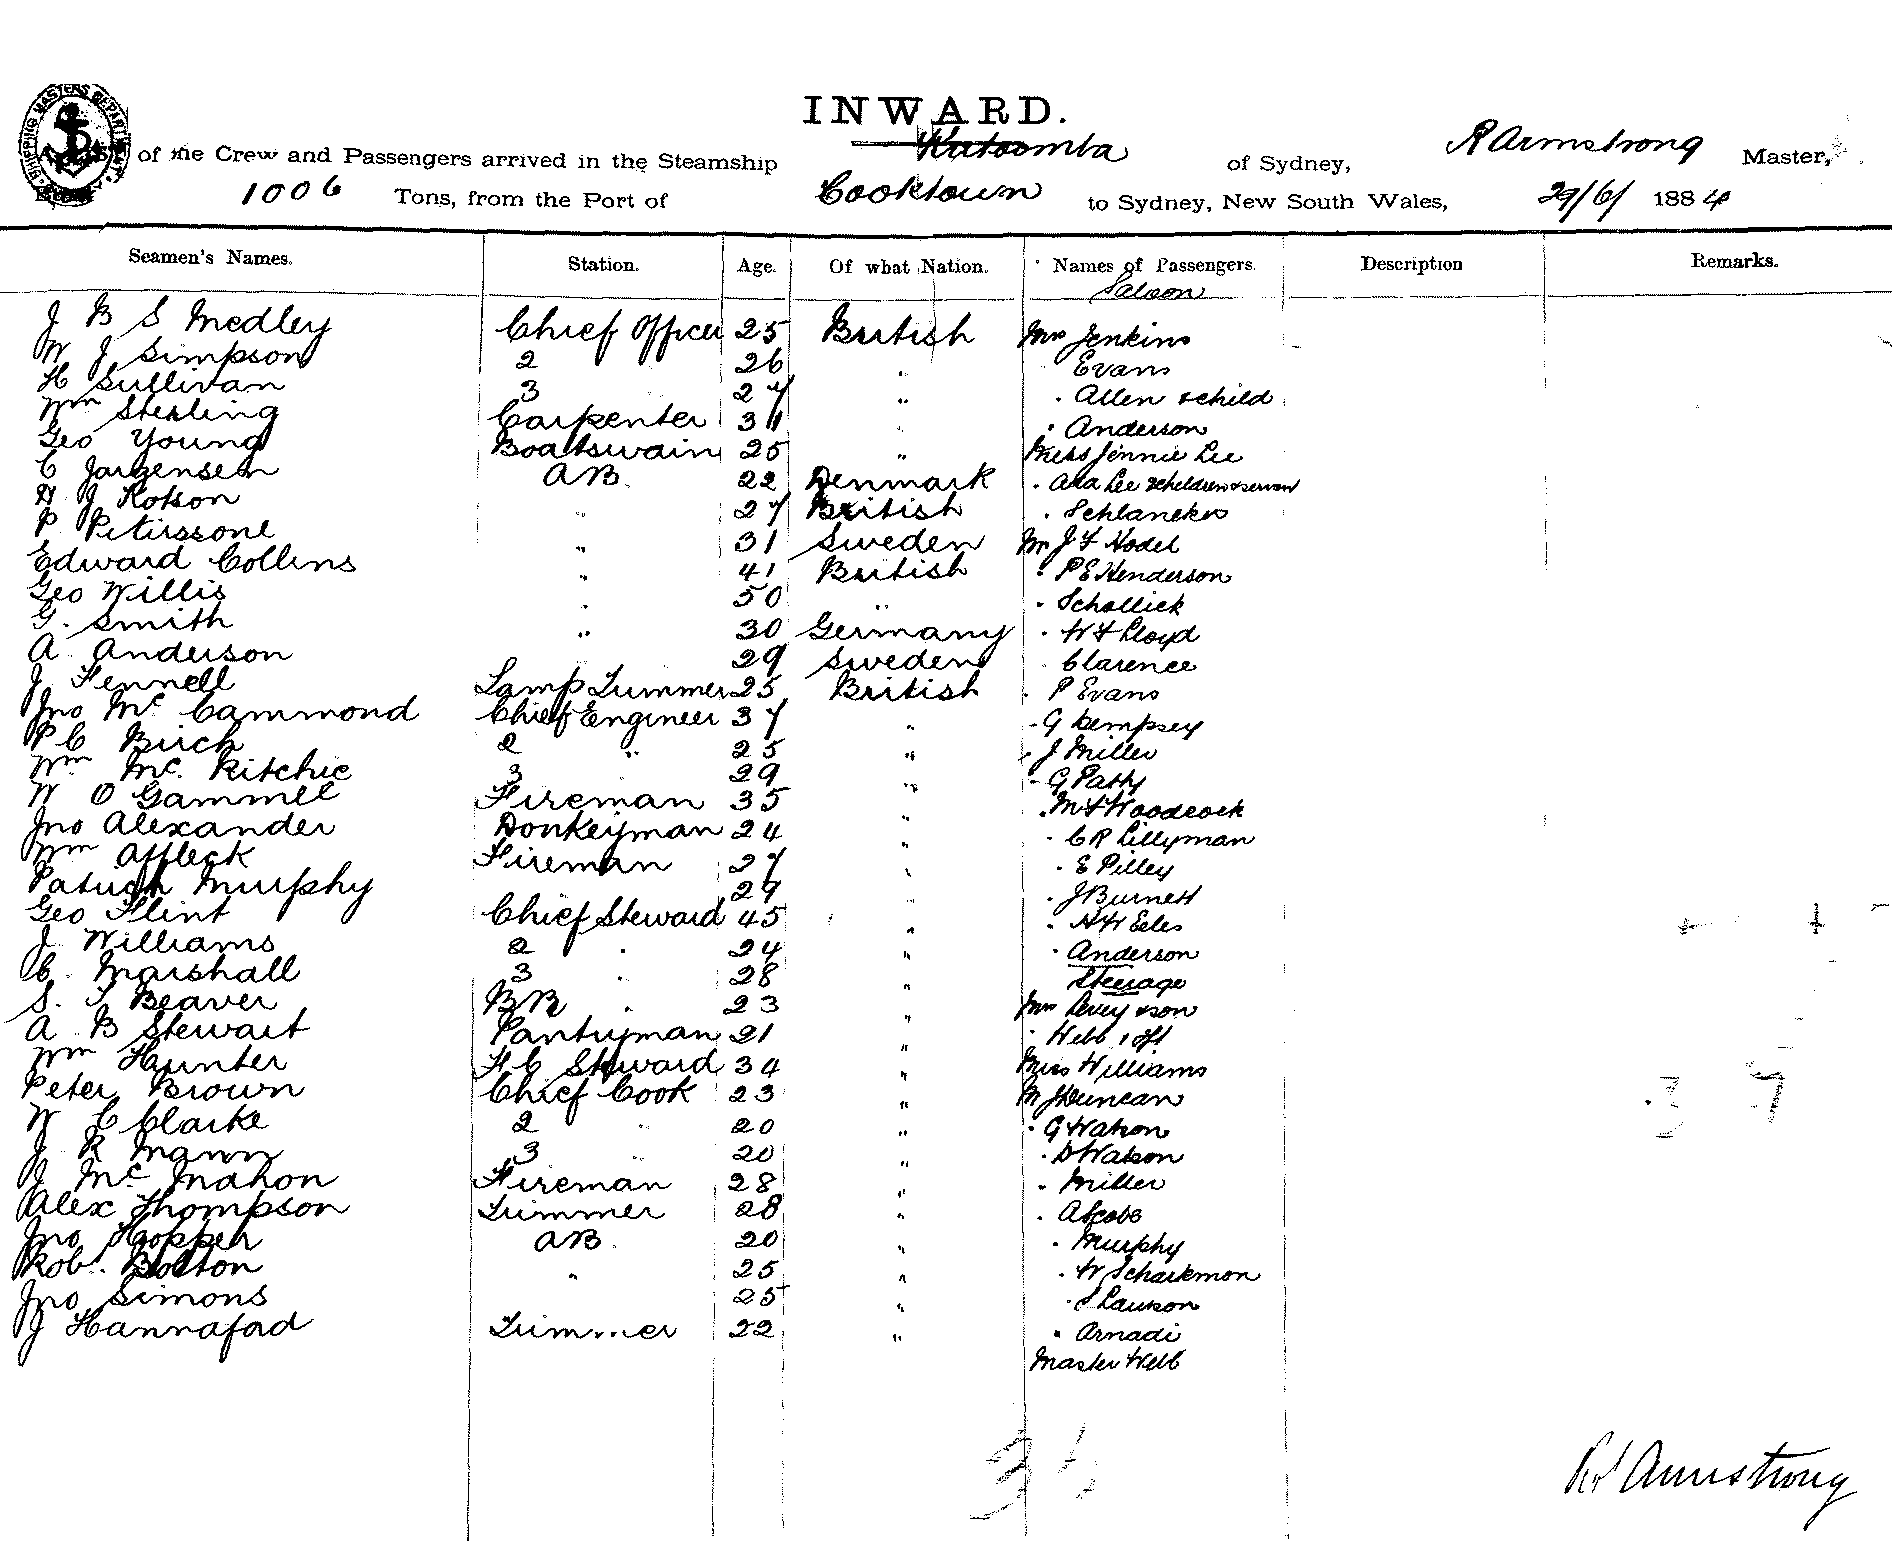 INWARD.
of the Crew and Passengers arrived in the Steamship Katoomba of Sydney, R Armstrong Master,
1006 Tons, from the Port of Cooktown to Sydney, New South Wales, 29/6/ 1884
Seamen's Names. Station. Age. Of what Nation. Names of Passengers. Description Remarks.
Saloon
J B S Medley Chief Officer 25 British Mrs Jenkins
W J Simpson 2 26 " Evans
H Sullivan 3 27 " " Allen & child
Wm Sterling Carpenter 31 " " Anderson
Geo Young Boatswain 25 " Miss Jennie Lee
C Jargensen AB 22 Denmark " Ada Lee & children & servant
H J Rotson " 27 British "
P Petirssone " 31 Sweden Mr J F Hodel
Edward Collins " 41 British " P E Henderson
Geo Willis " 50 " " Schollick
G. Smith " 30 Germany " W F Lloyd
A Anderson 29 Sweden " Clarence
J Fennell Lamp Trimmer 25 British " P Evans
Jno Mc Cammond Chief Engineer 37 " " G Dempsey
P C Birch 2 " 25 " " J Miller
Wm Mc. Ritchie 3 " 29 " " G Patty
W O Gammell Fireman 35 " " M F Woodcock
Jno Alexander Donkeyman 24 " " C R Lillyman
Wm Affleck Fireman 27 " " E Pilley
Patrick Murphy 29 " " J Burnett
Geo Flint Chief Steward 45 " " H W Eeles
J Williams 2 " 24 " " Anderson
C. Marshall 3 " 28 " Steerage
S. T Beaver BR " 23 " Mrs & son
A B Stewart Pantryman 21 " " Webb
Wm Hunter F C Steward 34 " Miss Williams
Peter Brown Chief Cook 23 " M J Duncan
W C Clarke 2 " 20 " " G Watson
J R Mann 3 " 20 " " D Watson
J Mc Mahon Fireman 28 " " Miller
Alex Thompson Trimmer 28 " "
Jno Hopper AB 20 " " Murphy
Rob. Bolton " 25 " " W Scharkmon
Jno Simons 25 " " S Lawson
J Hannaford Trimmer 22 " " Arnadi
Master Webb
R Armstrong